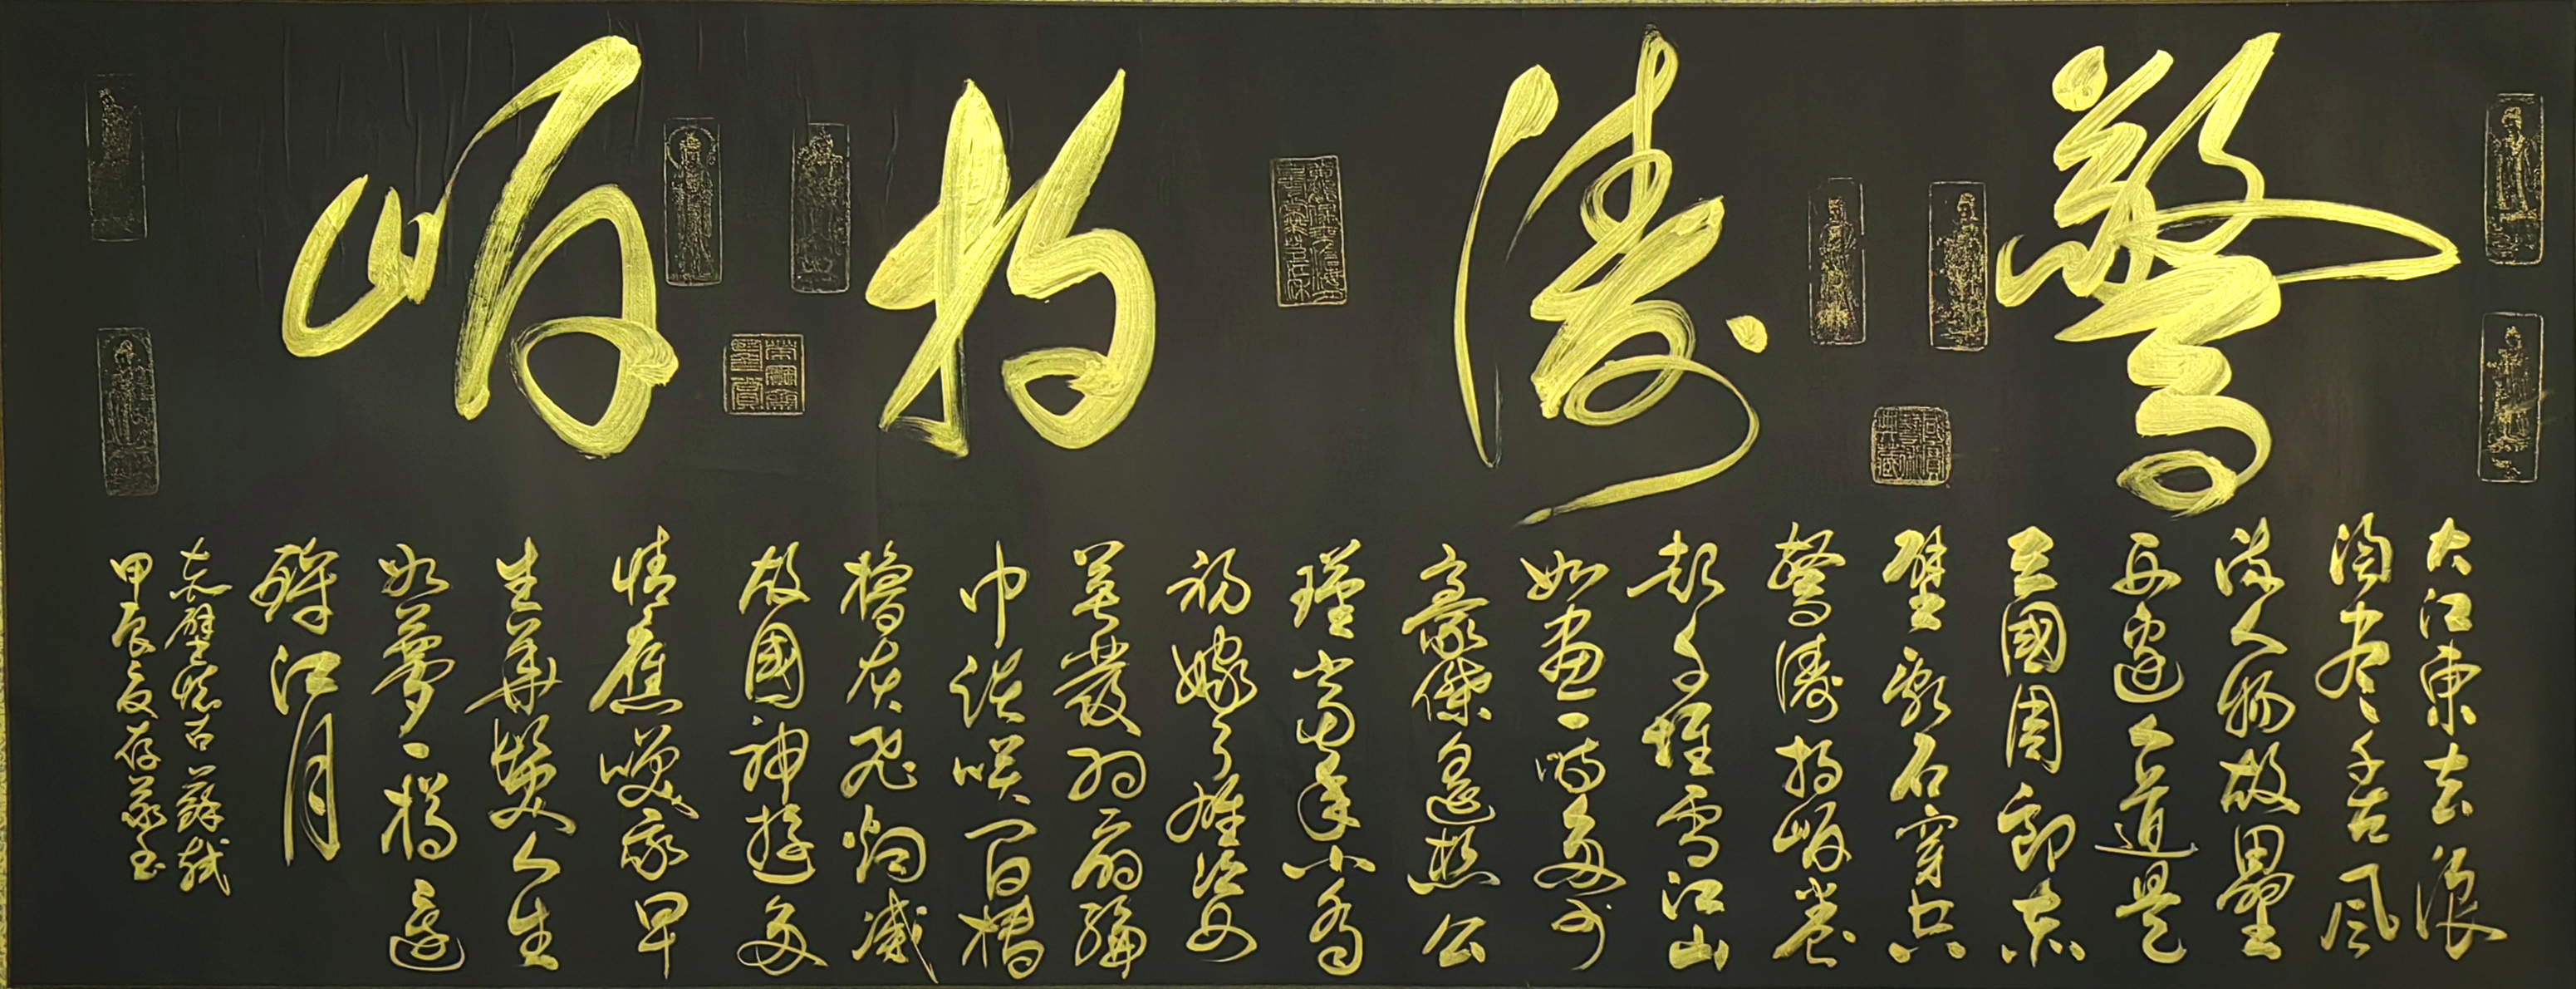 驚濤拍岸
大江東去浪
淘尽千古風
流人物故壘
西邊人道是
三國周郎赤
壁亂石穿空
驚濤拍岸卷
起千堆雪江山
如畫一時多少
豪傑遥想公
瑾當年小喬
初嫁了雄姿
英發羽扇綸
巾談笑間檣
櫓灰飛烟滅
故國神遊多
情應笑我早
生華髮人生
如夢一樽還
酹江月
赤壁懷古蘇軾
甲辰夏存義書